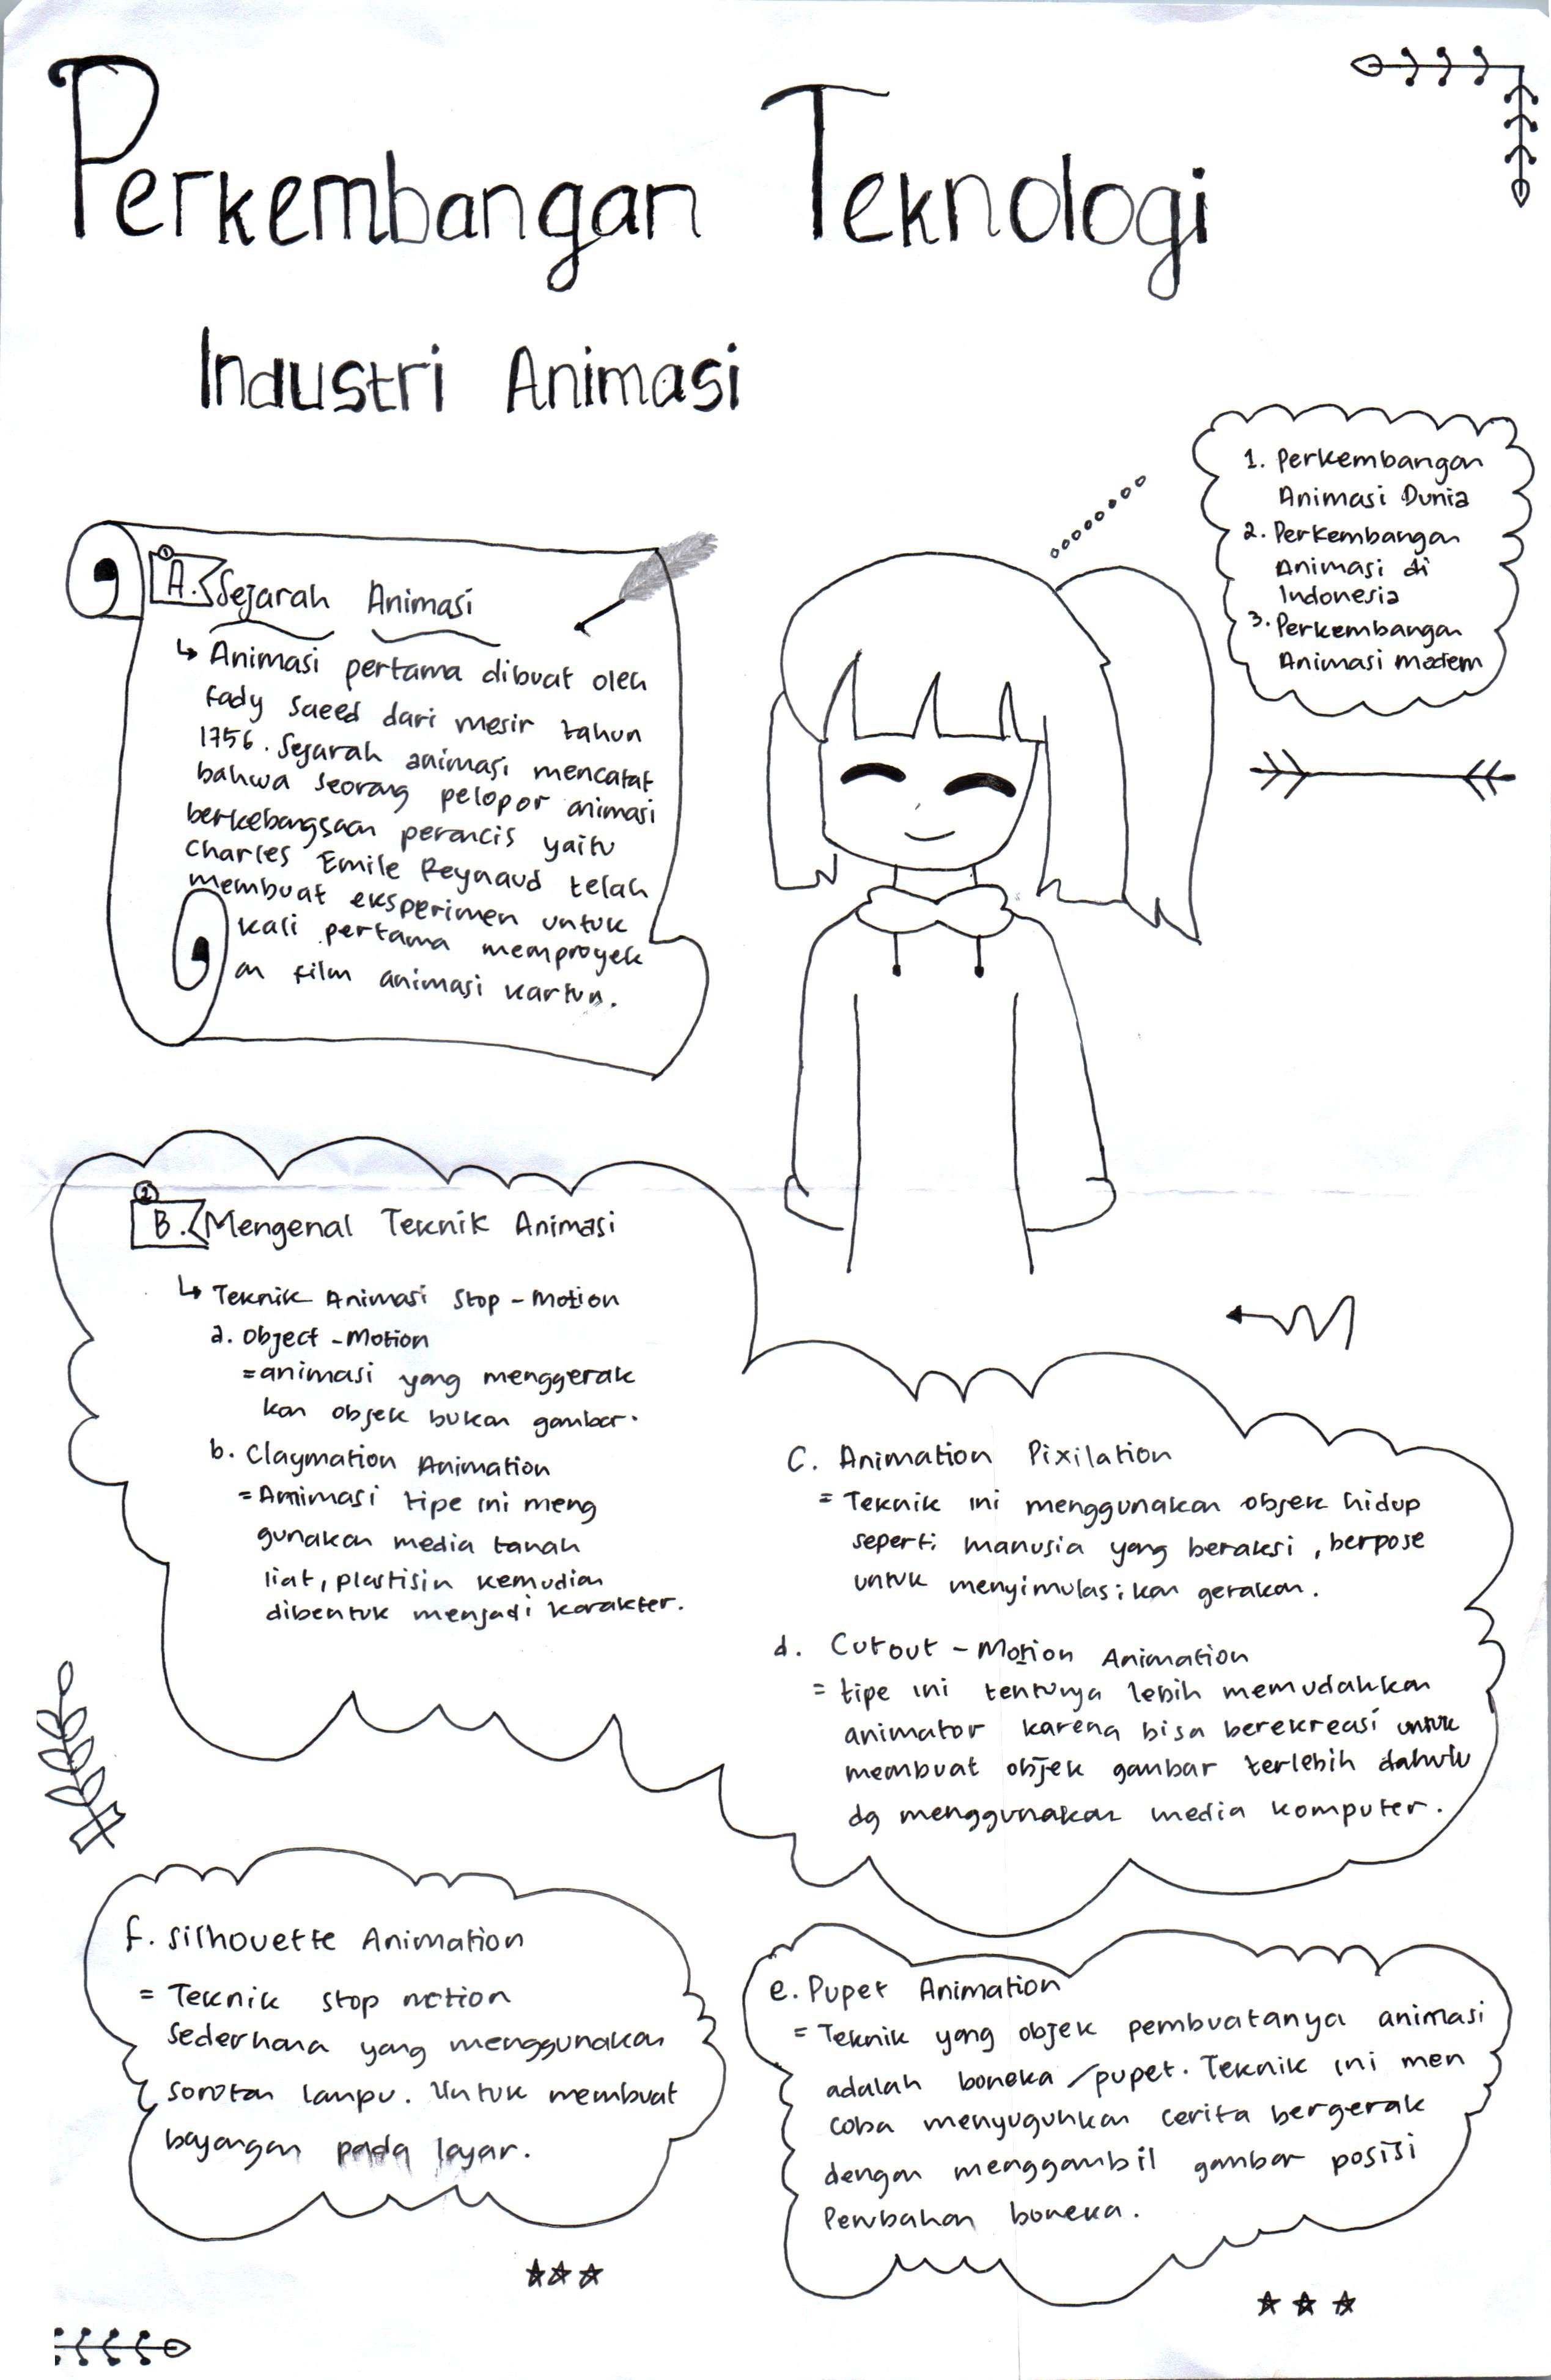 Perkembangan Teknologi
Industri Animasi
1. Perkembangan
Animasi Dunia
2. Perkembangan
Animasi di
Indonesia
3. Perkembangan
Animasi modern
1
A. Sejarah Animasi
↳ Animasi pertama dibuat oleh
Fady Saeed dari mesir tahun
1756. Sejarah animasi mencatat
bahwa seorang pelopor animasi
berkebangsaan perancis yaitu
Charles Emile Reynaud telah
membuat eksperimen untuk
kali pertama memproyek
an film animasi kartun.
2
B. Mengenal Teknik Animasi
↳ Teknik Animasi Stop-Motion
a. Object-Motion
= animasi yang menggerak
kan objek bukan gambar.
b. Claymation Animation
= Animasi tipe ini meng
gunakan media tanah
liat, plastisin kemudian
dibentuk menjadi karakter.
C. Animation Pixilation
= Teknik ini menggunakan objek hidup
seperti manusia yang beraksi, berpose
untuk menyimulasikan gerakan.
d. Cutout-Motion Animation
= tipe ini tentunya lebih memudahkan
animator karena bisa berekreasi untuk
membuat objek gambar terlebih dahulu
dg menggunakan media komputer.
e. Pupet Animation
= Teknik yang objek pembuatanya animasi
adalah boneka/pupet. Teknik ini men
coba menyuguhkan cerita bergerak
dengan menggambil gambar posisi
Perubahan boneka.
f. Silhouette Animation
= Teknik stop motion
sederhana yang menggunakan
sorotan lampu. Untuk membuat
bayangan pada layar.